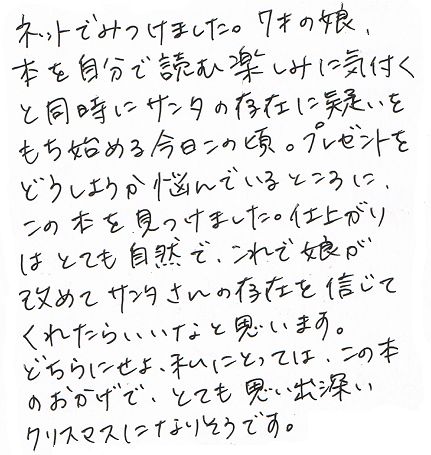 ネットでみつけました。7才の娘、
本を自分で読む楽しみに気付く
と同時にサンタの存在に疑いを
もち始める今日この頃。プレゼントを
どうしようか悩んでいるところに、
この本を見つけました。仕上がり
はとても自然で、これで娘が
改めてサンタさんの存在を信じて
くれたらいいなと思います。
どちらにせよ、私にとっては、この本
のおかげで、とても思い出深い
クリスマスになりそうです。